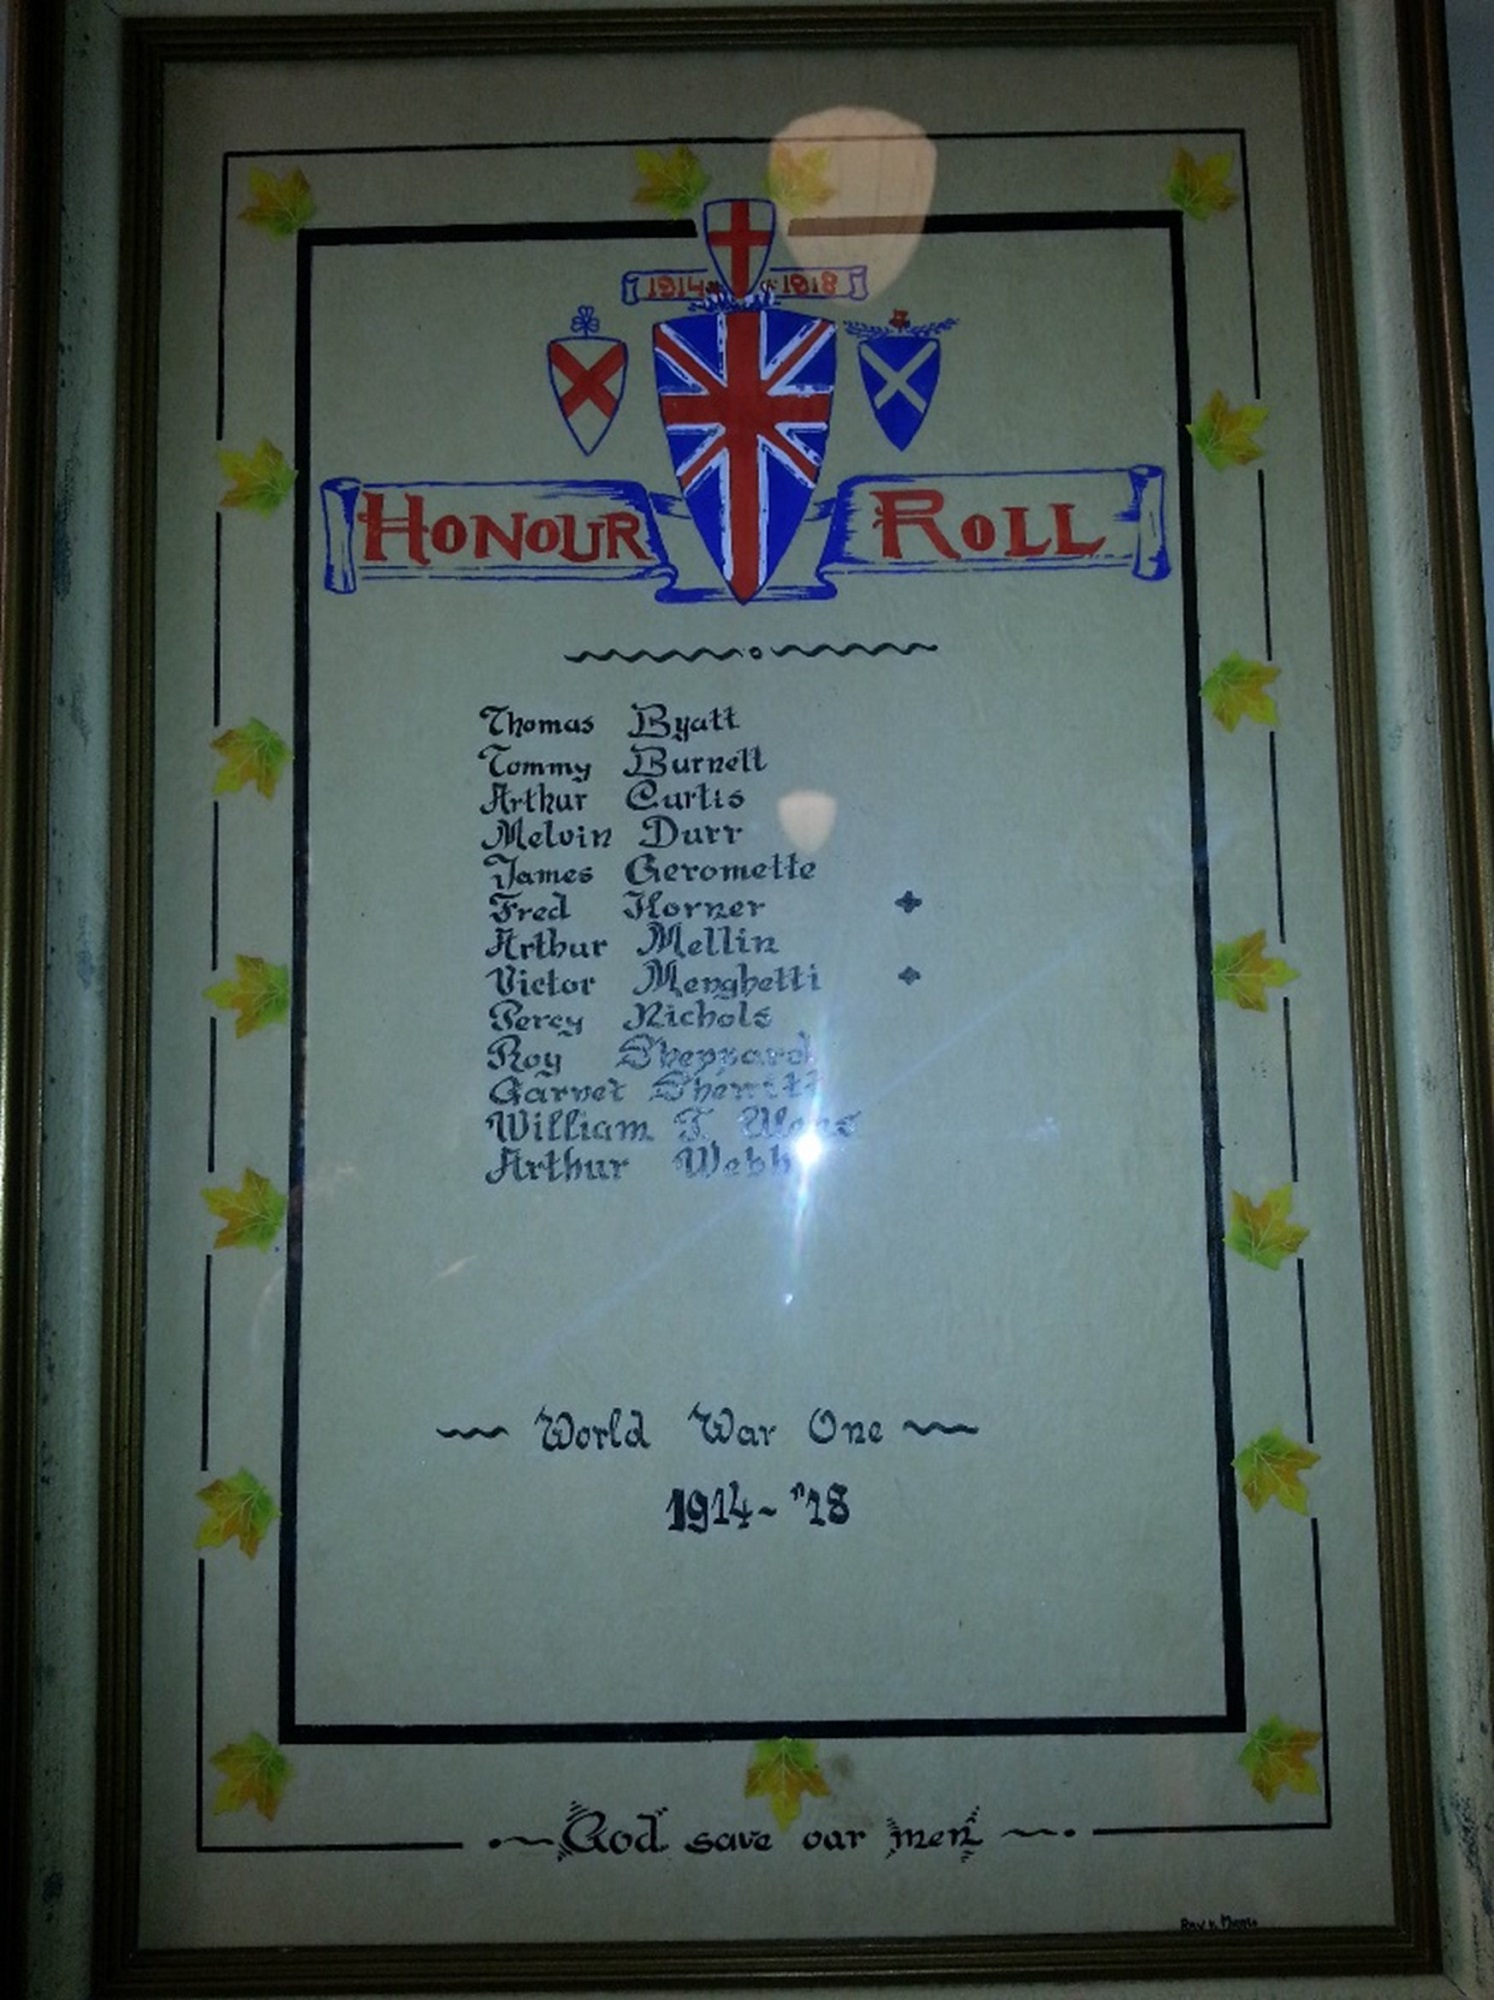 1914 1918
HONOUR ROLL
Thomas Byatt
Tommy Burnett
Arthur Curtis
Melvin Durr
James Geromette
Fred Horner
Arthur Mellin
Victor Menghetti
Percy Nichols
Roy Sheppard
Garnet Sherritt
William T.
Arthur Webb
World War One
1914~"18
God save our men